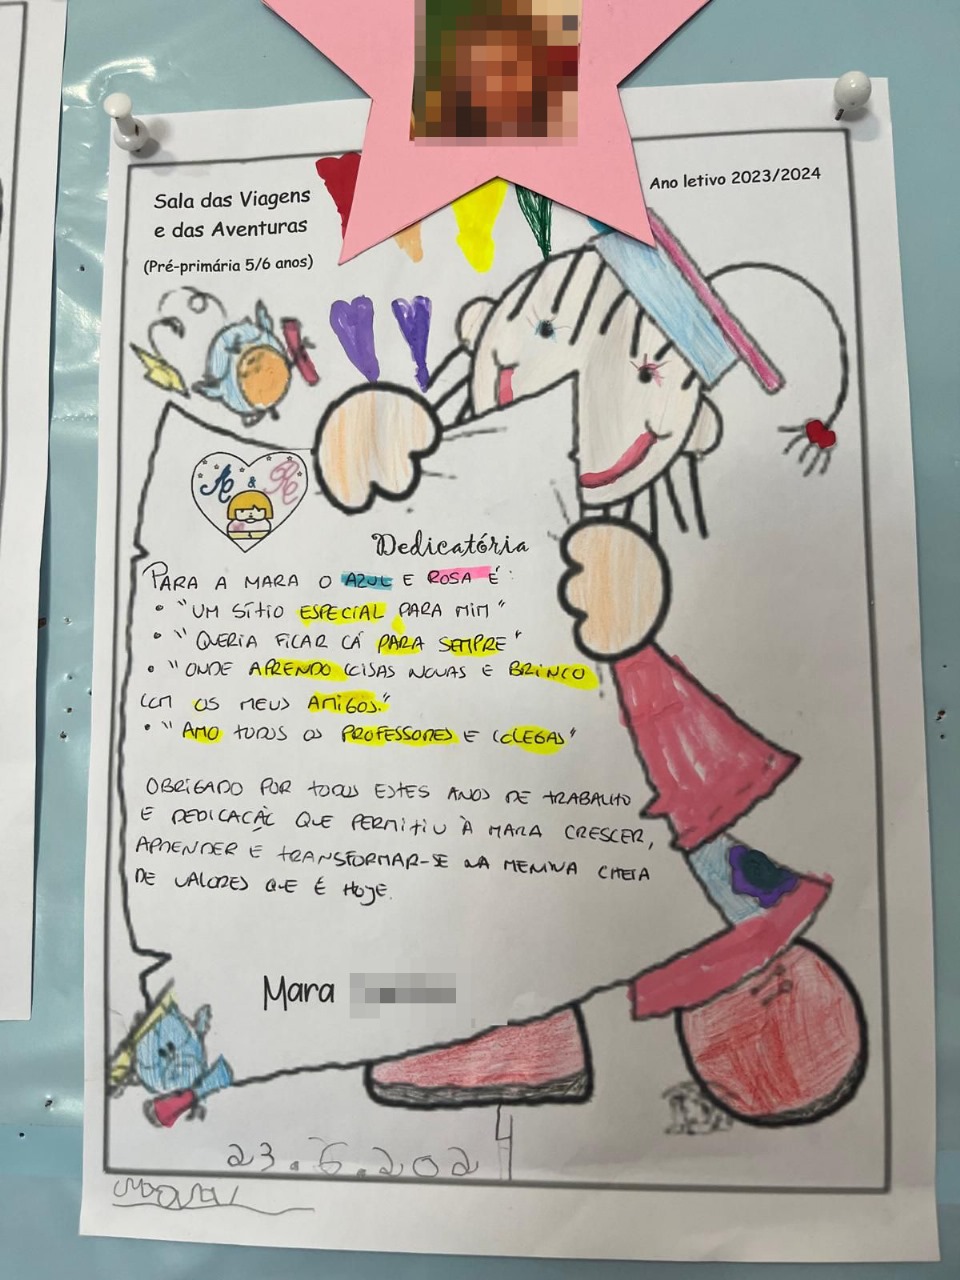 Sala das Viagens
e das Aventuras
(Pré-primária 5/6 anos)
Ano letivo 2023/2024
A & R
Dedicatória
PARA A MARA O AZUL E ROSA É:
• "UM SÍTIO ESPECIAL PARA MIM"
• "QUERIA FICAR CÁ PARA SEMPRE"
• "ONDE APRENDO COISAS NOVAS E BRINCO
COM OS MEUS AMIGOS."
• "AMO TODOS OS PROFESSORES E COLEGAS"
OBRIGADO POR TODOS ESTES ANOS DE TRABALHO
E DEDICAÇÃO QUE PERMITIU À MARA CRESCER,
APRENDER E TRANSFORMAR-SE NA MENINA CHEIA
DE VALORES QUE É HOJE.
Mara
23.6.2024